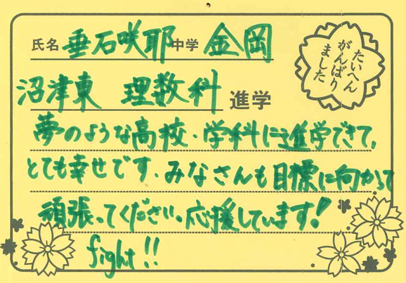 氏名 垂石咲耶 中学 金岡
たいへん
がんばり
ました
沼津東 理数科 進学
夢のような高校・学科に進学できて,
とても幸せです. みなさんも目標に向かって
頑張ってください. 応援しています!
fight!!